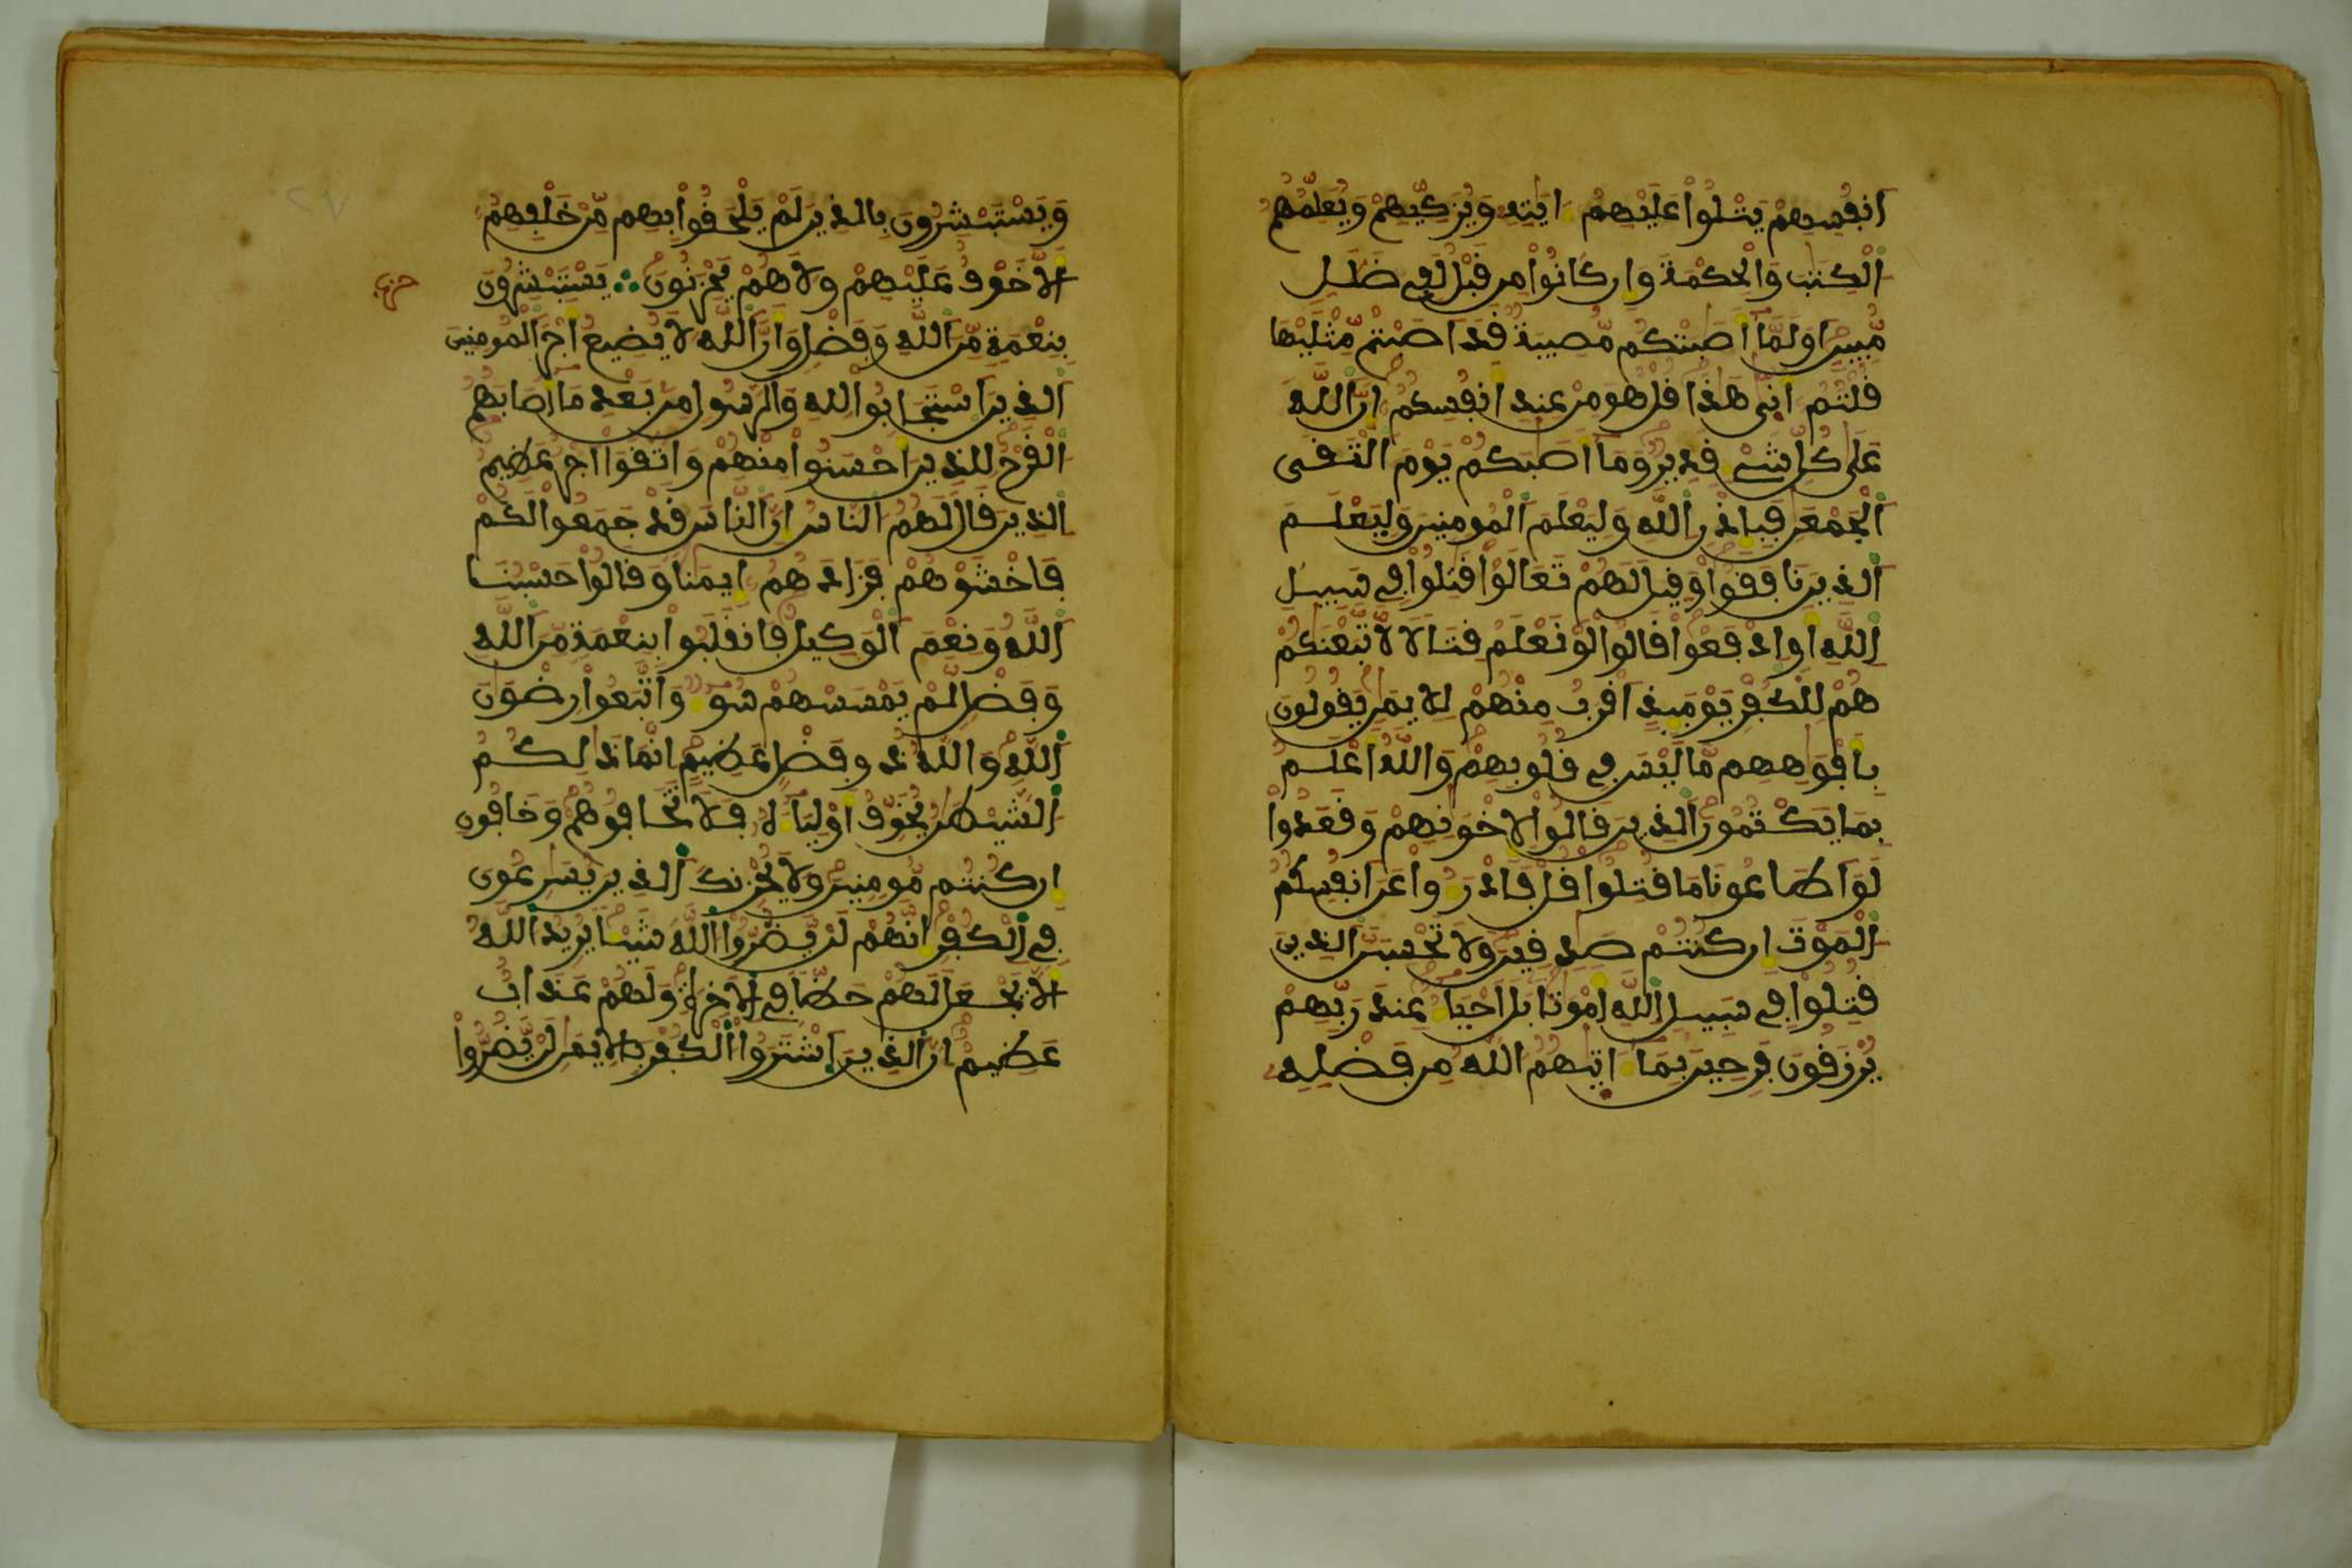 انفسهم يتلوا عليهم ايته ويزكيهم ويعلمهم
الكتب والحكمة وان كانوا من قبل لفي ضلل
مبين اولما اصبتكم مصيبة قد اصبتم مثليها
قلتم انى هذا قل هو من عند انفسكم ان الله
على كل شىء قدير وما اصبكم يوم التقى
الجمعن فباذن الله وليعلم المومنين وليعلم
الذين نافقوا وقيل لهم تعالوا قتلوا في سبيل
الله او ادفعوا قالوا لو نعلم قتالا لا تبعنكم
هم للكفر يوميذ اقرب منهم للايمن يقولون
بافوههم ما ليس في قلوبهم والله اعلم
بما يكتمون الذين قالوا لاخونهم وقعدوا
لو اطاعونا ما قتلوا قل فادرءوا عن انفسكم
الموت ان كنتم صدقين ولا تحسبن الذين
قتلوا في سبيل الله اموتا بل احياء عند ربهم
يرزقون فرحين بما اتيهم الله من فضله
ويستبشرون بالذين لم يلحقوا بهم من خلفهم
الا خوف عليهم ولا هم يحزنون يستبشرون
حزب
بنعمة من الله وفضل وان الله لا يضيع اجر المومنين
الذين استجابوا لله والرسول من بعد ما اصابهم
القرح للذين احسنوا منهم واتقوا اجر عظيم
الذين قال لهم الناس ان الناس قد جمعوا لكم
فاخشوهم فزادهم ايمنا وقالوا حسبنا
الله ونعم الوكيل فانقلبوا بنعمة من الله
وفضل لم يمسسهم سوء واتبعوا رضون
الله والله ذو فضل عظيم انما ذالكم
الشيطن يخوف اولياءه فلا تخافوهم وخافون
ان كنتم مومنين ولا يحزنك الذين يسرعون
في الكفر انهم لن يضروا الله شيا يريد الله
الا يجعل لهم حظا في الاخرة ولهم عذاب
عظيم ان الذين اشتروا الكفر بالايمن لن يضروا